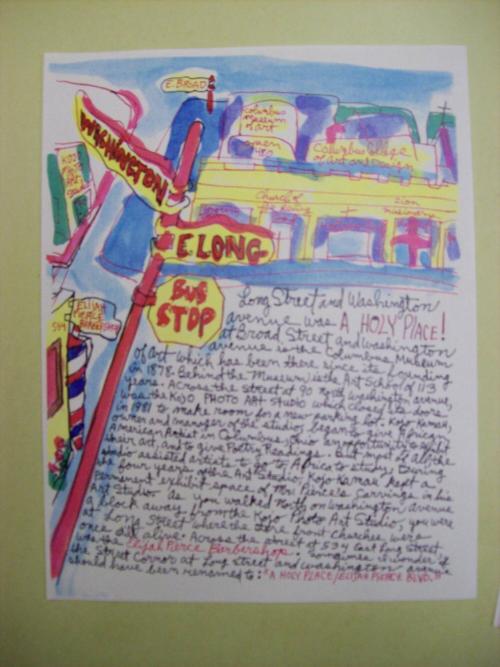 E. BROAD
WASHINGTON
Columbus
Museum
of art
Columbus College
of Art and Design
KOJO
PHOTO
ART
Church of
Zion
missionary
E. LONG
BUS
STOP
ELIJAH
PIERCE
BARBERSHOP
534
Long Street and Washington
avenue was A HOLY PLACE!
at Broad Street and Washington
avenue is the Columbus Museum
of art which has been there since its founding
in 1878. Behind the Museum is the Art School of 113
years. Across the street at 90 North Washington avenue,
was the KOJO PHOTO ART STUDIO which closed its doors
in 1981 to make room for a new parking lot. Kojo Kamau,
owner and manager of the studio, began to give African-
American Artist in Columbus, Ohio an opportunity to exhibit
their art, and to give Poetry Readings. But most of all the
studio assisted artists to go to Africa to study. During
the four years of the Art Studio, Kojo Kamau kept a
Permanent exhibit space of Mr. Pierce's Carvings in his
Art Studio. As you walked North on Washington avenue
a block away from the Kojo Photo Art Studio, you were
at Long Street where the store front churches were
once all alive. Across the street at 534 East Long Street
was the Elijah Pierce Barbershop. Sometimes I wonder if
the Street Corner at Long Street and Washington avenue
should have been renamed to: "A HOLY PLACE/ELIJAH PIERCE BLVD."